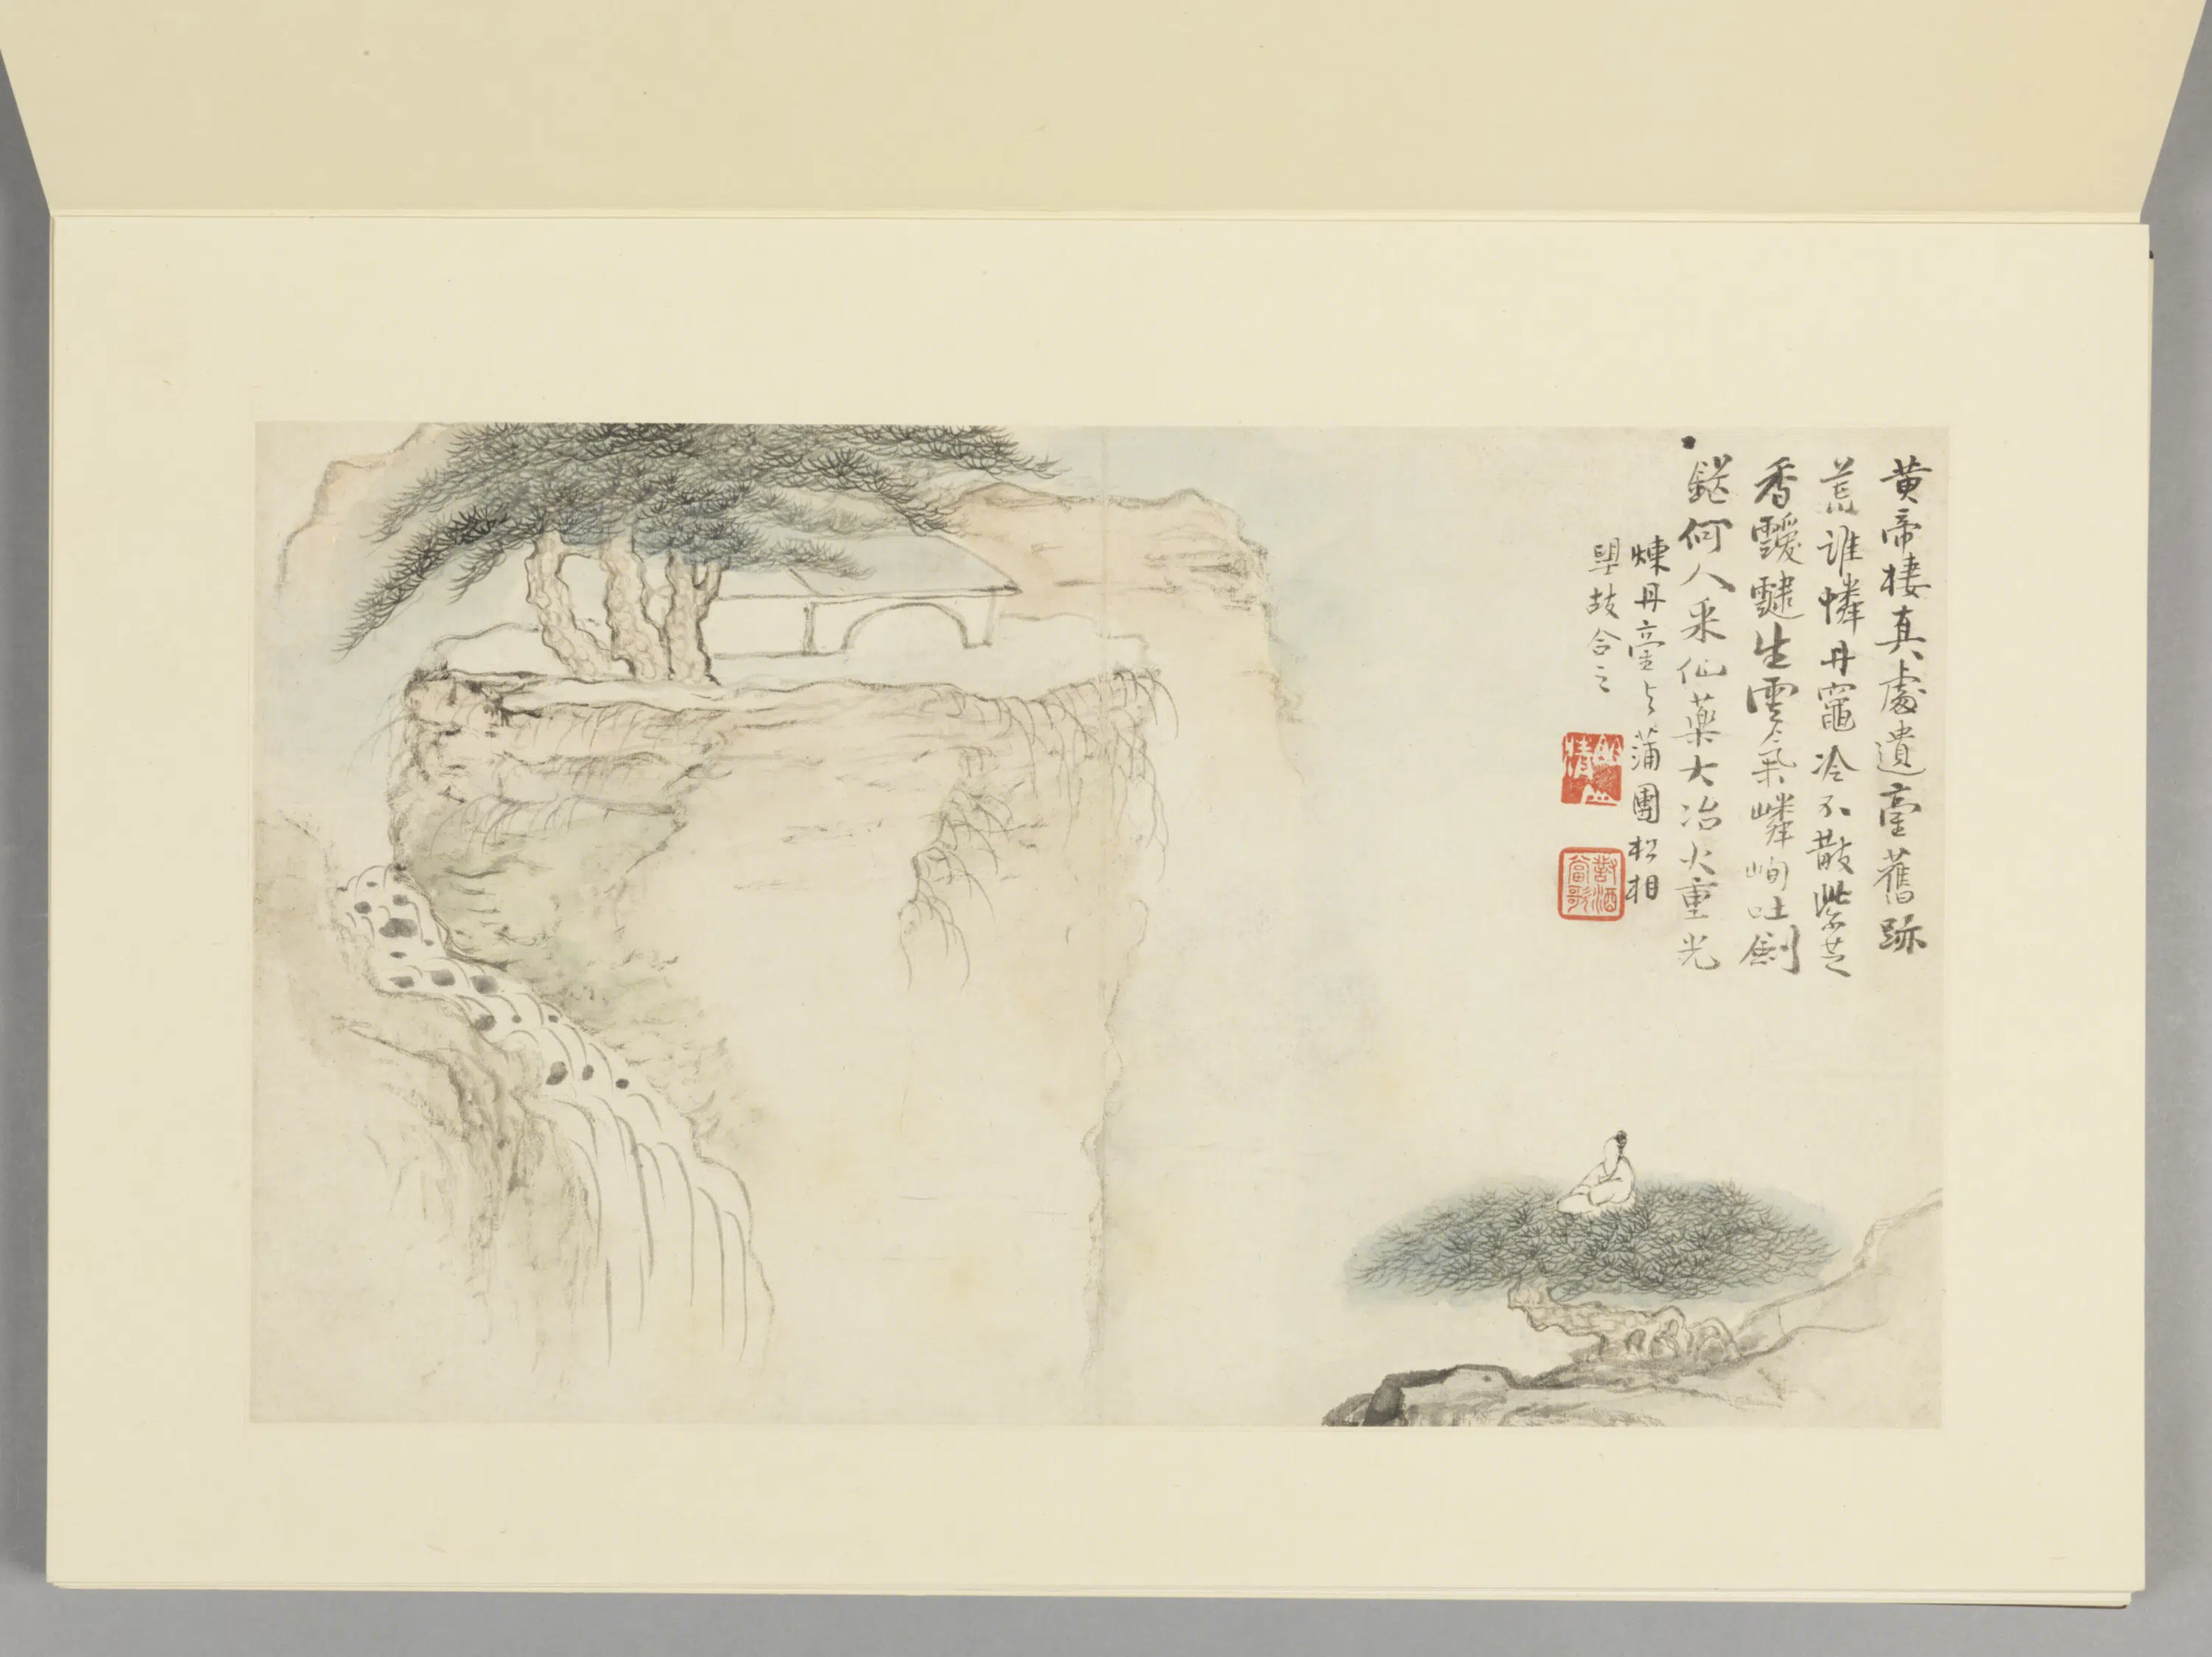 黄帝棲真處遺臺舊跡
荒誰憐丹竈冷不散紫芝
香靉靆生雲氣嶙峋吐劍
鋩何人采仙藥大冶火重光
煉丹臺与蒲團松相
朢故合之
對酒當歌